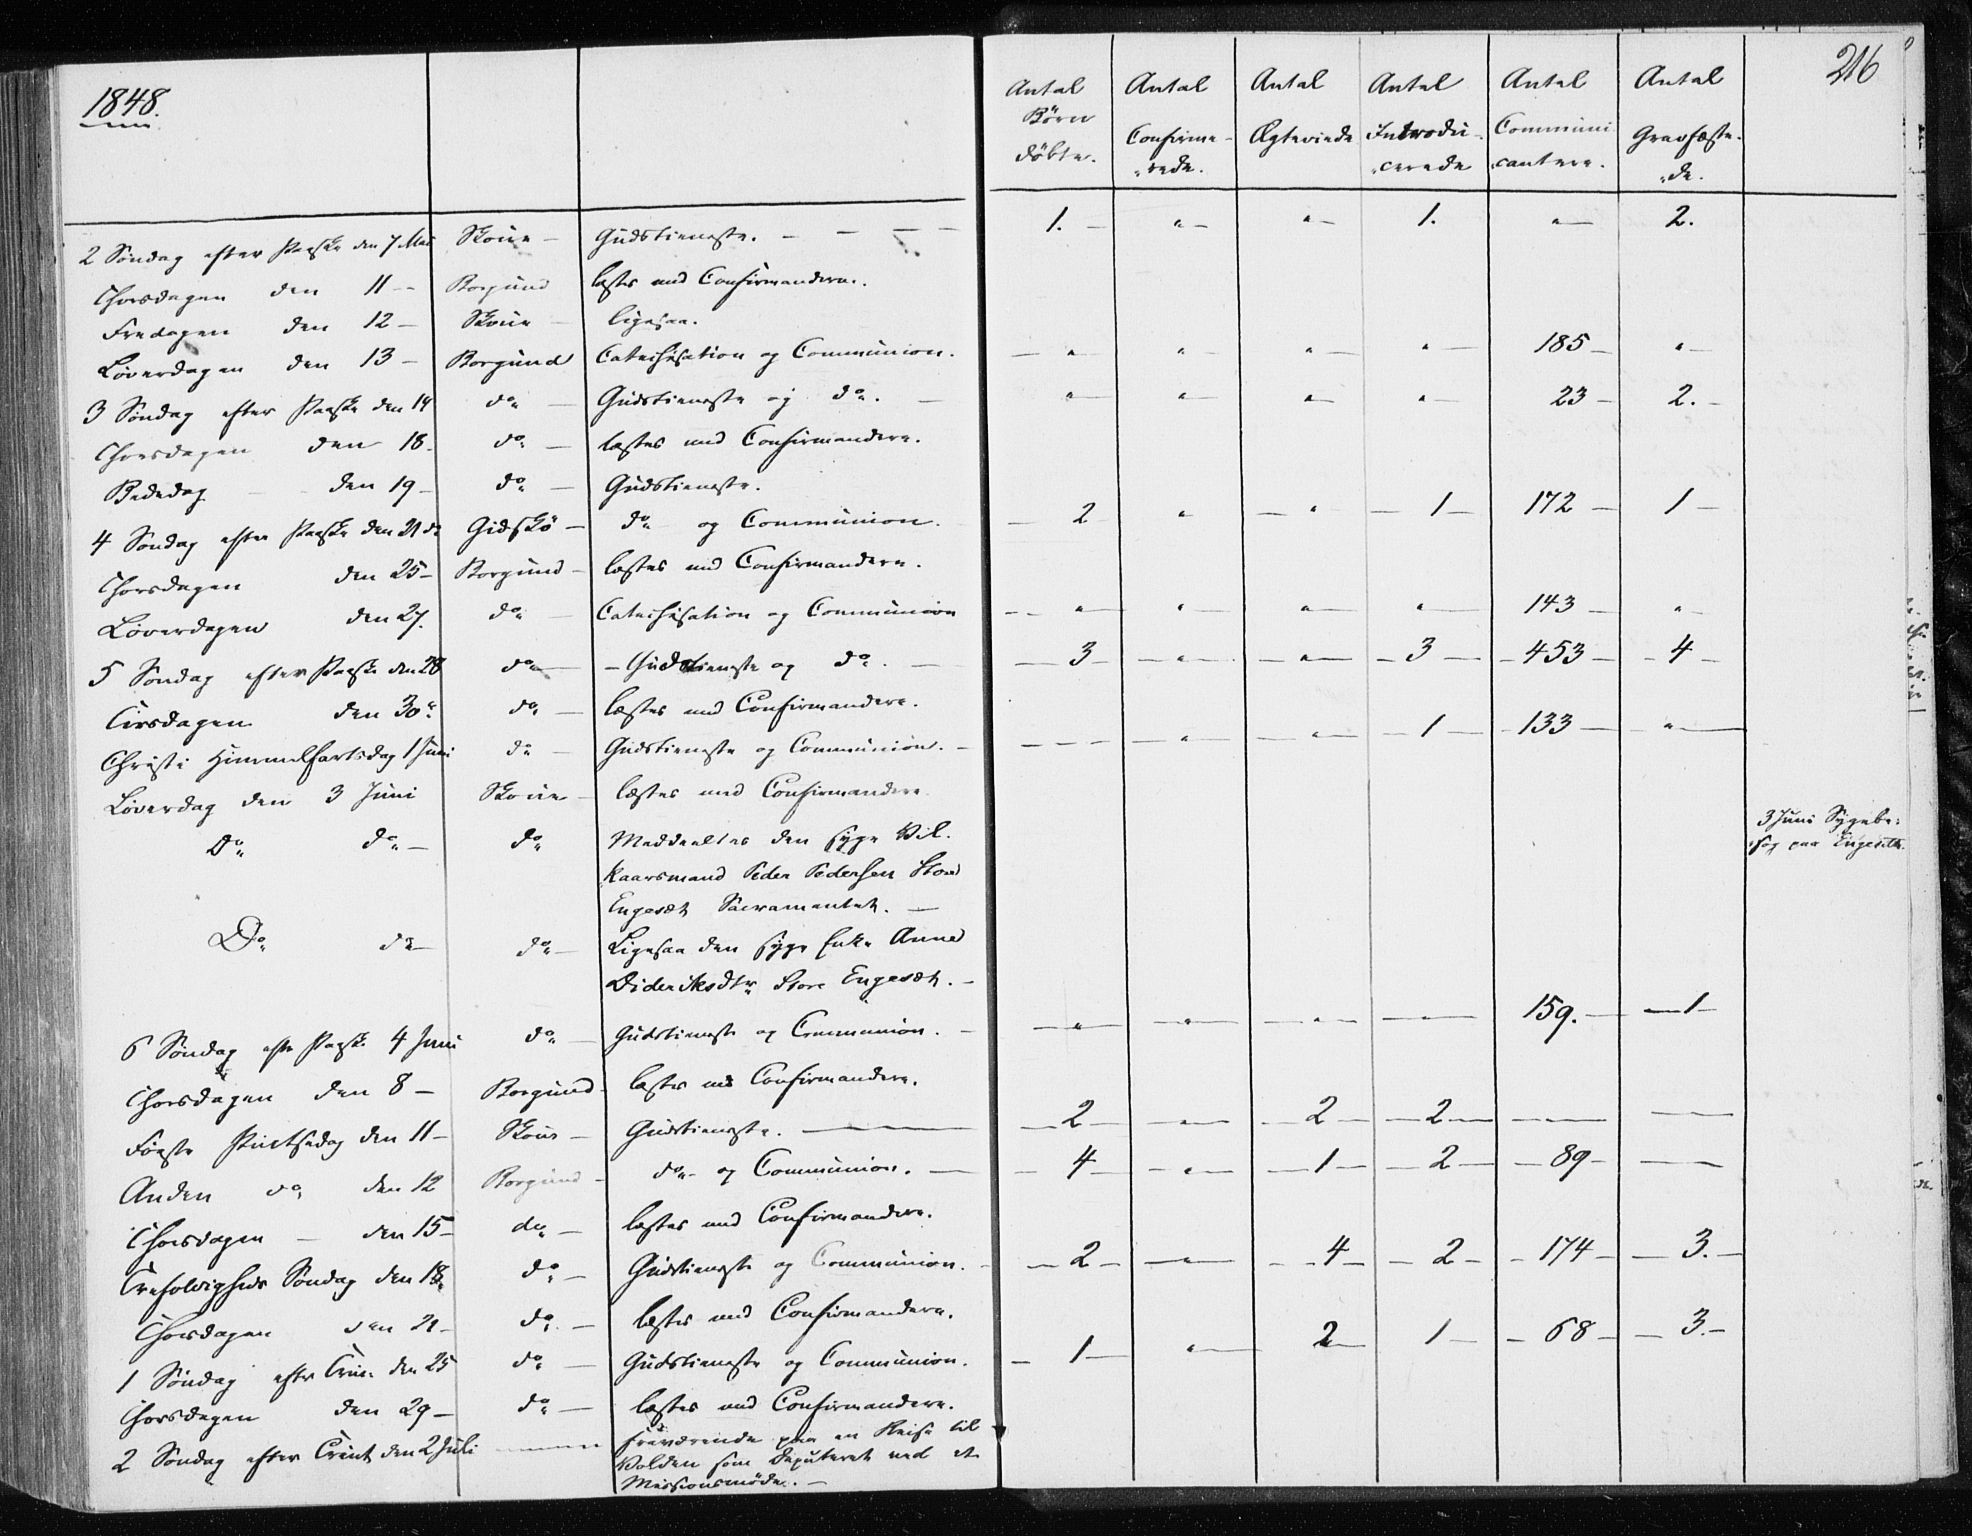 1848.
216
Antal Børn døbte. Antal Confirme-rede. Antal Ægteviede Antal Introdu-cerede Antal Communi-cantere. Antal Gravfæste-de.
2 Søndag efter Paaske den 7 Mai Skoue – Gudstieneste. – – – – 1. – „ – „ – 1. „ – 2.
Thorsdagen den 11 – – Borgund læstes med Confirmandere.
Fredagen den 12 – Skoue – ligesaa.
Løverdagen den 13 – Borgund Catechisation og Communion. – „ „ – „ – „ – 185 – „ –
3 Søndag efter Paaske den 14 do – Gudstieneste og do. – „ – „ – „ – „ – 23 – 2. –
Thorsdagen den 18. do – læstes med Confirmandere.
Bededag – den 19 – do – Gudstieneste.
4 Søndag efter Paaske den 21 de Gidskø – do og Communion. – 2 „ – „ – 1 – 172 – 1 –
Thorsdagen den 25 – Borgund – læstes med Confirmandere.
Løverdagen den 27. do – Catechisation og Communion – „ – „ – „ – „ – 143 – „ –
5 Søndag efter Paaske den 28 do – – Gudstieneste og do. – – 3 – – „ – – „ – – 3 – – 453 – – 4 –
Tirsdagen den 30 do – læstes med Confirmandere.
Christi Himmelfartsdag 1 Juni do – Gudstieneste og Communion. – – – – – „ – – „ – – 1 – – 133 – „ –
Løverdag den 3 Juni Skoue – læstes med Confirmandere.
Do do – do Meddeeltes den syge Vil-
kaarsmand Peder Pedersen Store
Engesæt Sacramentet. –
3 Juni Sygebe:
søg paa Engesæth.
Do do – do – Ligesaa den syge Enke Anne
Dideriksdtr Store Engesæt. –
6 Søndag eftr Paaske 4 Juni do – Gudstieneste og Communion. – – „ – – „ – – „ – – – 159. – – 1 –
Thorsdagen den 8 – Borgund – læstes med Confirmandere.
Første Pintsedag den 11 – Skoue – Gudstieneste. – – 2 – – „ – 2 – – 2 – – –
Anden do den 12 Borgund – do – og Communion. – – 4 – – „ – – 1 – – 2 – – 89 – –
Thorsdagen – den 15 – do – læstes med Confirmandere.
Trefoldigheds Søndag den 18 do – Gudstieneste og Communion. – – 2 – – – 4 – – 2 – – 174 – – 3. –
Thorsdagen den 21 – do. – læstes med Confirmandere.
1 Søndag eftr Trin. den 25 do – Gudstieneste og Communion. – 1 – „ – 2 – 1 – – 68 – – 3. –
Thorsdagen den 29 – do – læstes med Confirmandere.
2 Søndag efter Trinit den 2 Juli – fraværende paa en Reise til
Volden som Deputeret ved et
Missionsmøde. –